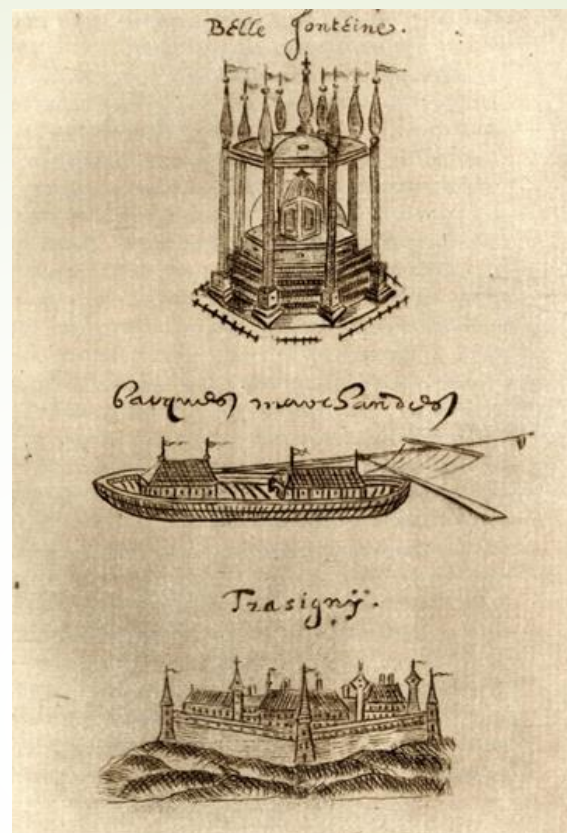 Belle fonteine.
barques marchandes
Trasignÿ.